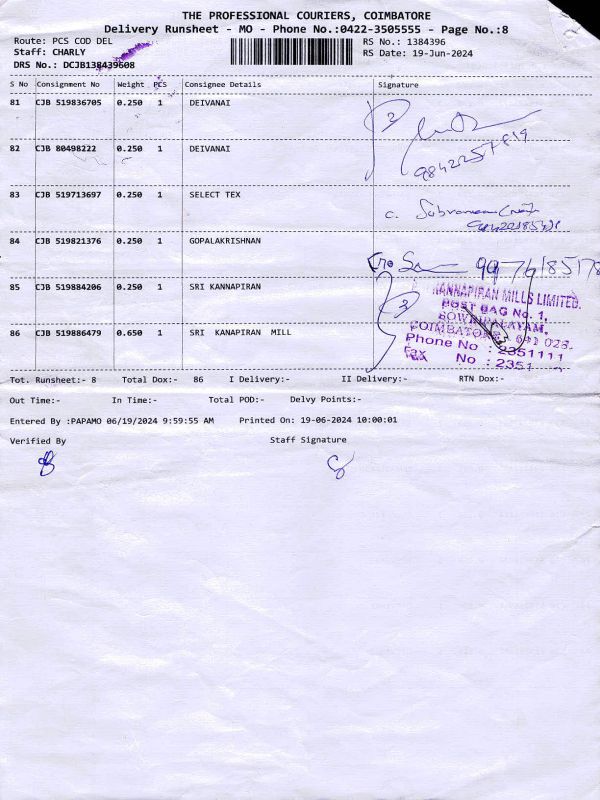 THE PROFESSIONAL COURIERS, COIMBATORE
Delivery Runsheet - MO - Phone No.:0422-3505555 - Page No.:8
Route: PCS COD DEL
RS No.: 1384396
Staff: CHARLY
RS Date: 19-Jun-2024
DRS No.: DCJB138439608
S No Consignment No Weight PCS Consignee Details Signature
81 CJB 519836705 0.250 1 DEIVANAI
2
82 CJB 80498222 0.250 1 DEIVANAI
83 CJB 519713697 0.250 1 SELECT TEX
84 CJB 519821376 0.250 1 GOPALAKRISHNAN
85 CJB 519884206 0.250 1 SRI KANNAPIRAN
KANNAPIRAN MILLS LIMITED.
POST BAG No. 1,
SOWRIPALAYAM,
86 CJB 519886479 0.650 1 SRI KANAPIRAN MILL
COIMBATORE - 641 028.
Phone No : 2351111
Fax No : 2351
Tot. Runsheet:- 8 Total Dox:- 86 I Delivery:- II Delivery:- RTN Dox:-
Out Time:- In Time:- Total POD:- Delvy Points:-
Entered By :PAPAMO 06/19/2024 9:59:55 AM Printed On: 19-06-2024 10:00:01
Verified By Staff Signature